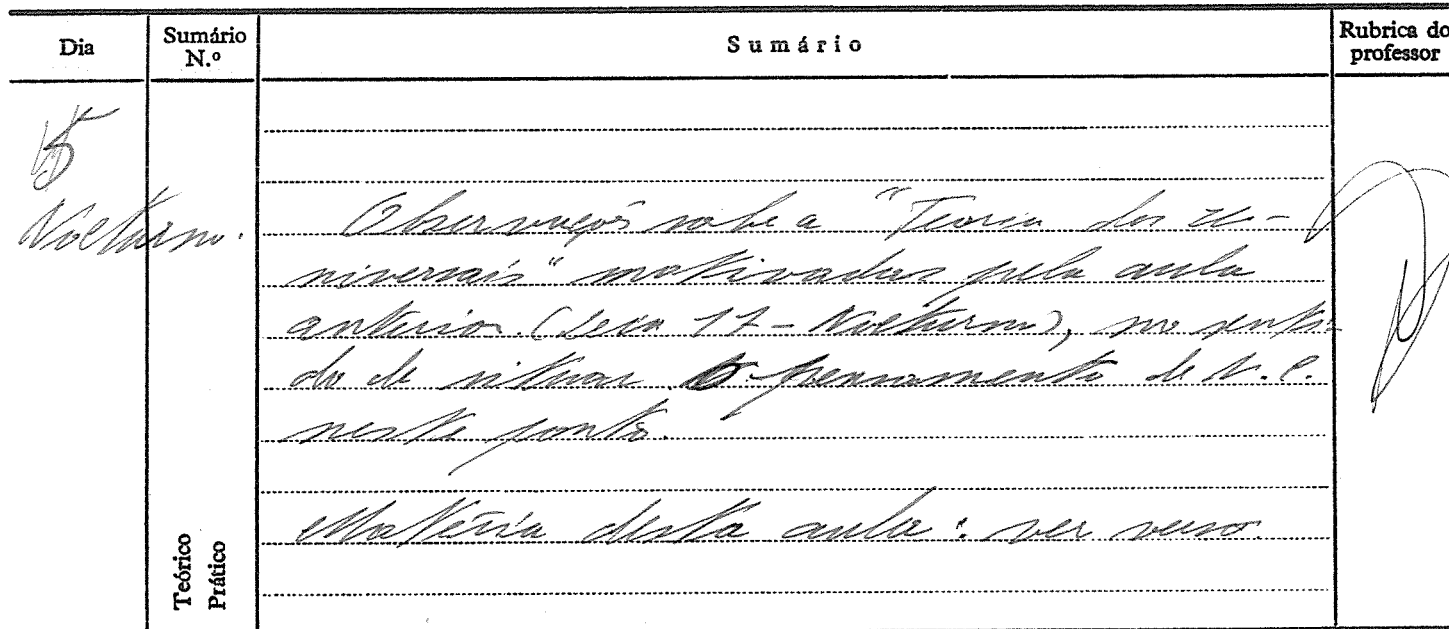 Dia
Sumário N.º
Sumário
Rubrica do professor
15
Nocturno.
Observações sobre a "Teoria dos u-
niversais" motivadas pela aula
anterior. (Lera 12 - Nocturno), no senti-
do de situar o pensamento de N. C.
neste ponto.
Matéria desta aula: ver verso.
Teórico
Prático